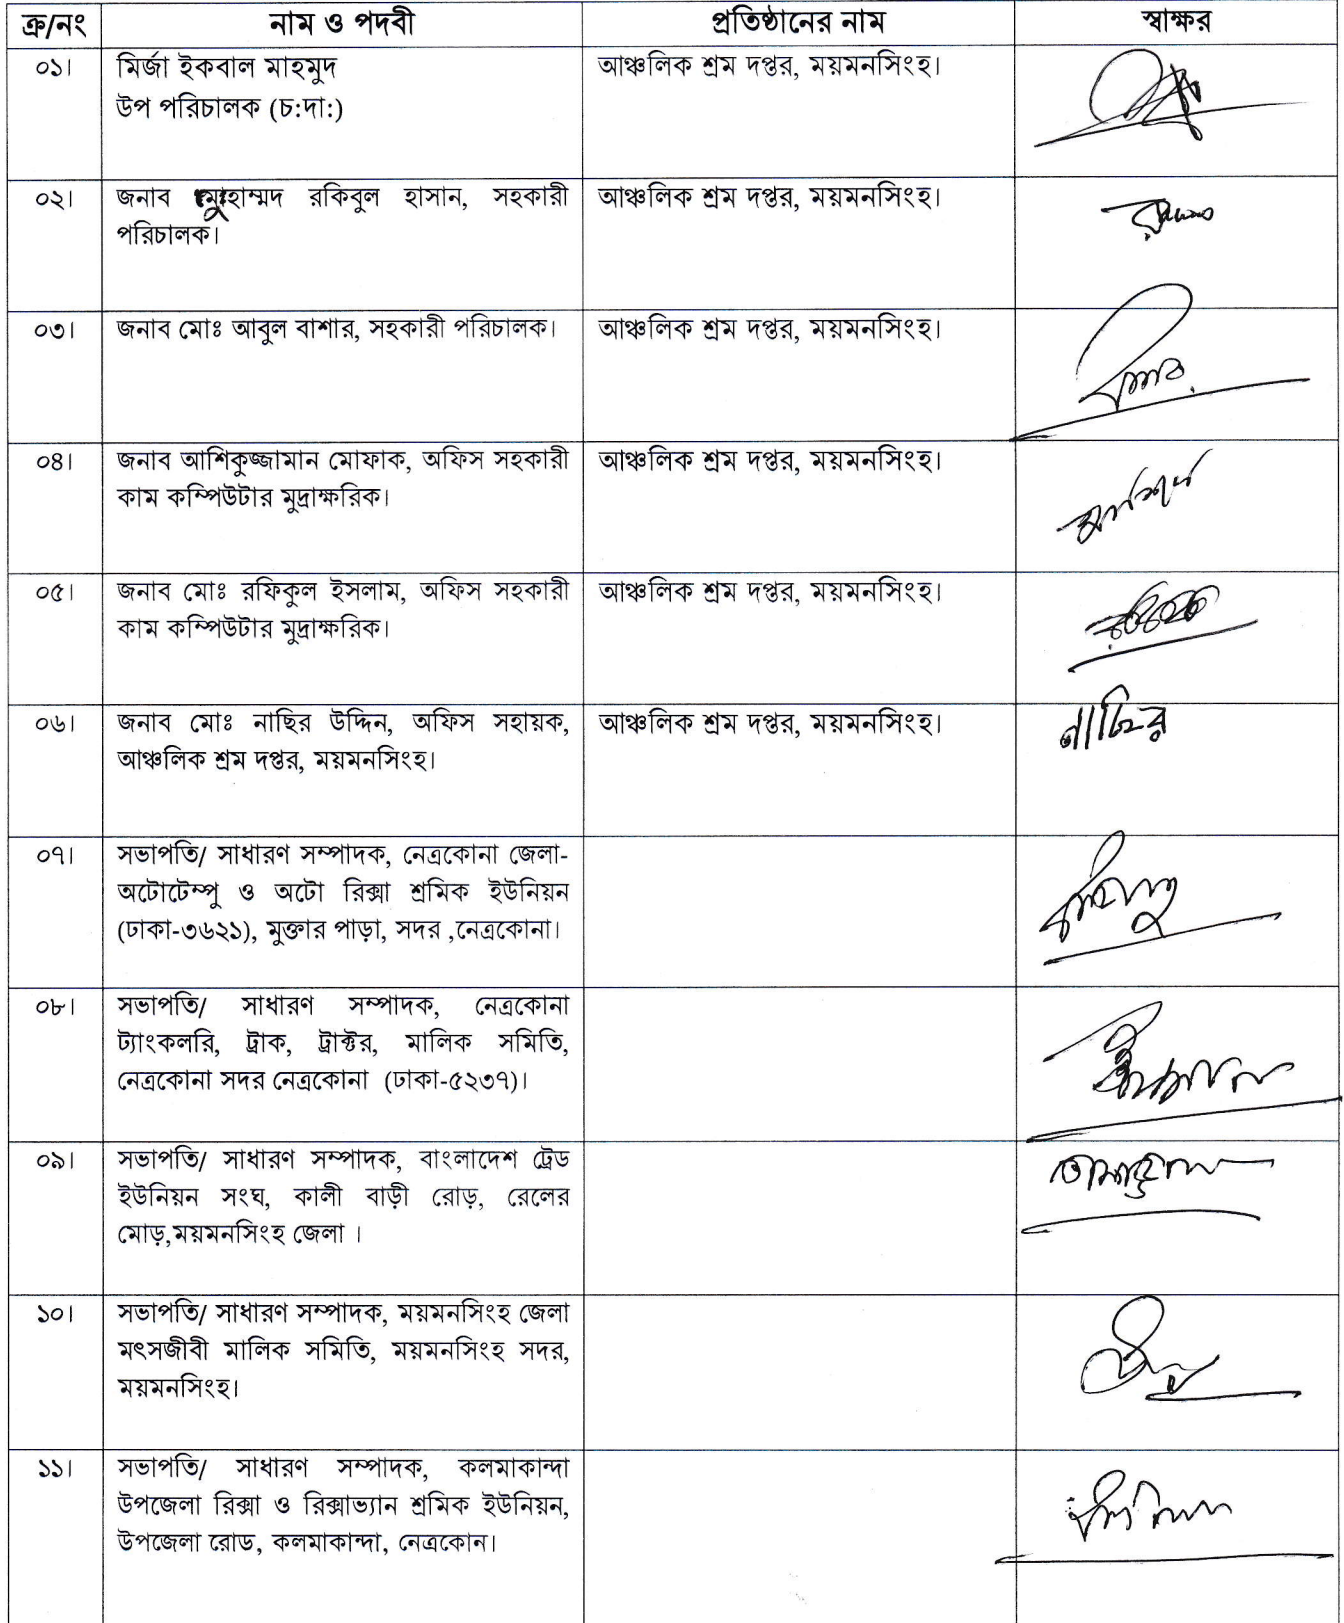 ক্র/নং নাম ও পদবী প্রতিষ্ঠানের নাম স্বাক্ষর
০১। মির্জা ইকবাল মাহমুদ আঞ্চলিক শ্রম দপ্তর, ময়মনসিংহ।
উপ পরিচালক (চ:দা:)
০২। জনাব মুহাম্মদ রকিবুল হাসান, সহকারী আঞ্চলিক শ্রম দপ্তর, ময়মনসিংহ।
পরিচালক।
০৩। জনাব মোঃ আবুল বাশার, সহকারী পরিচালক। আঞ্চলিক শ্রম দপ্তর, ময়মনসিংহ।
০৪। জনাব আশিকুজ্জামান মোফাক, অফিস সহকারী আঞ্চলিক শ্রম দপ্তর, ময়মনসিংহ।
কাম কম্পিউটার মুদ্রাক্ষরিক।
০৫। জনাব মোঃ রফিকুল ইসলাম, অফিস সহকারী আঞ্চলিক শ্রম দপ্তর, ময়মনসিংহ।
কাম কম্পিউটার মুদ্রাক্ষরিক।
০৬। জনাব মোঃ নাছির উদ্দিন, অফিস সহায়ক, আঞ্চলিক শ্রম দপ্তর, ময়মনসিংহ। নাছির
আঞ্চলিক শ্রম দপ্তর, ময়মনসিংহ।
০৭। সভাপতি/ সাধারণ সম্পাদক, নেত্রকোনা জেলা-
অটোটেম্পু ও অটো রিক্সা শ্রমিক ইউনিয়ন
(ঢাকা-৩৬২১), মুক্তার পাড়া, সদর ,নেত্রকোনা।
০৮। সভাপতি/ সাধারণ সম্পাদক, নেত্রকোনা
ট্যাংকলরি, ট্রাক, ট্রাক্টর, মালিক সমিতি,
নেত্রকোনা সদর নেত্রকোনা (ঢাকা-৫২৩৭)।
০৯। সভাপতি/ সাধারণ সম্পাদক, বাংলাদেশ ট্রেড
ইউনিয়ন সংঘ, কালী বাড়ী রোড়, রেলের
মোড়,ময়মনসিংহ জেলা ।
১০। সভাপতি/ সাধারণ সম্পাদক, ময়মনসিংহ জেলা
মৎসজীবী মালিক সমিতি, ময়মনসিংহ সদর,
ময়মনসিংহ।
১১। সভাপতি/ সাধারণ সম্পাদক, কলমাকান্দা
উপজেলা রিক্সা ও রিক্সাভ্যান শ্রমিক ইউনিয়ন,
উপজেলা রোড, কলমাকান্দা, নেত্রকোন।